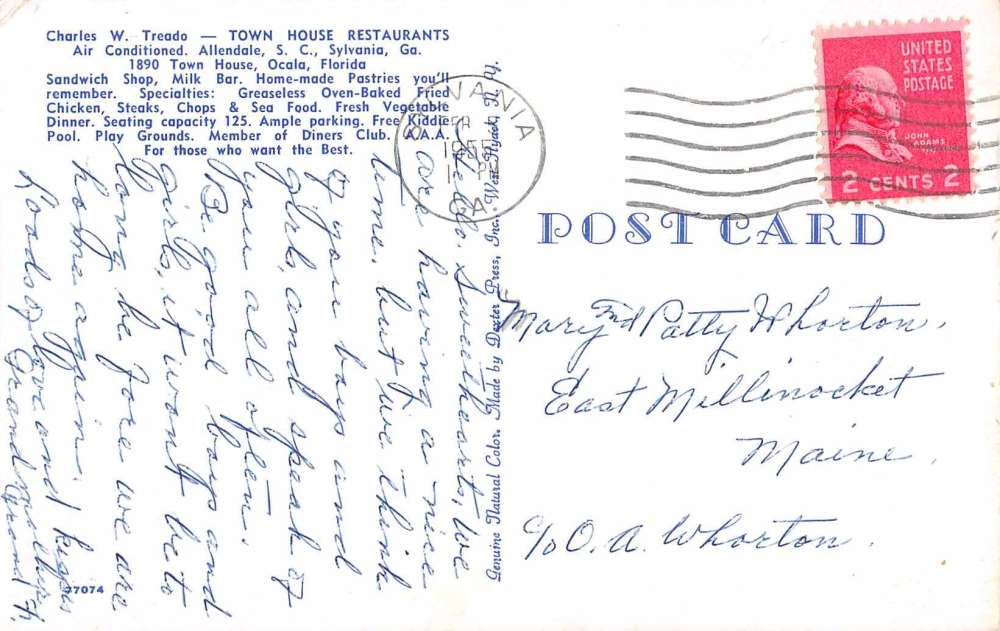 Charles W. Treado — TOWN HOUSE RESTAURANTS
Air Conditioned. Allendale, S. C., Sylvania, Ga.
1890 Town House, Ocala, Florida
Sandwich Shop, Milk Bar. Home-made Pastries you'll
remember. Specialties: Greaseless Oven-Baked Fried
Chicken, Steaks, Chops & Sea Food. Fresh Vegetable
Dinner. Seating capacity 125. Ample parking. Free Kiddie
Pool. Play Grounds. Member of Diners Club. A.A.A.
For those who want the Best.
Hello, Sweethearts, We
are having a nice
time, but we think
of you boys and
girls, and speak of
you all often.
Be good boys and
girls, it wont be to
long be fore we are
home again.
Loads of love and kisses
Grandmother
Grand
77074
Genuine Natural Color. Made by Dexter Press, Inc., West Nyack, N. Y.
SYLVANIA
UNITED
STATES
POSTAGE
JOHN
ADAMS
2 CENTS 2
POST CARD
Mary nd Patty Whorton,
East Millinocket
Maine,
c/o O. A. Whorton.